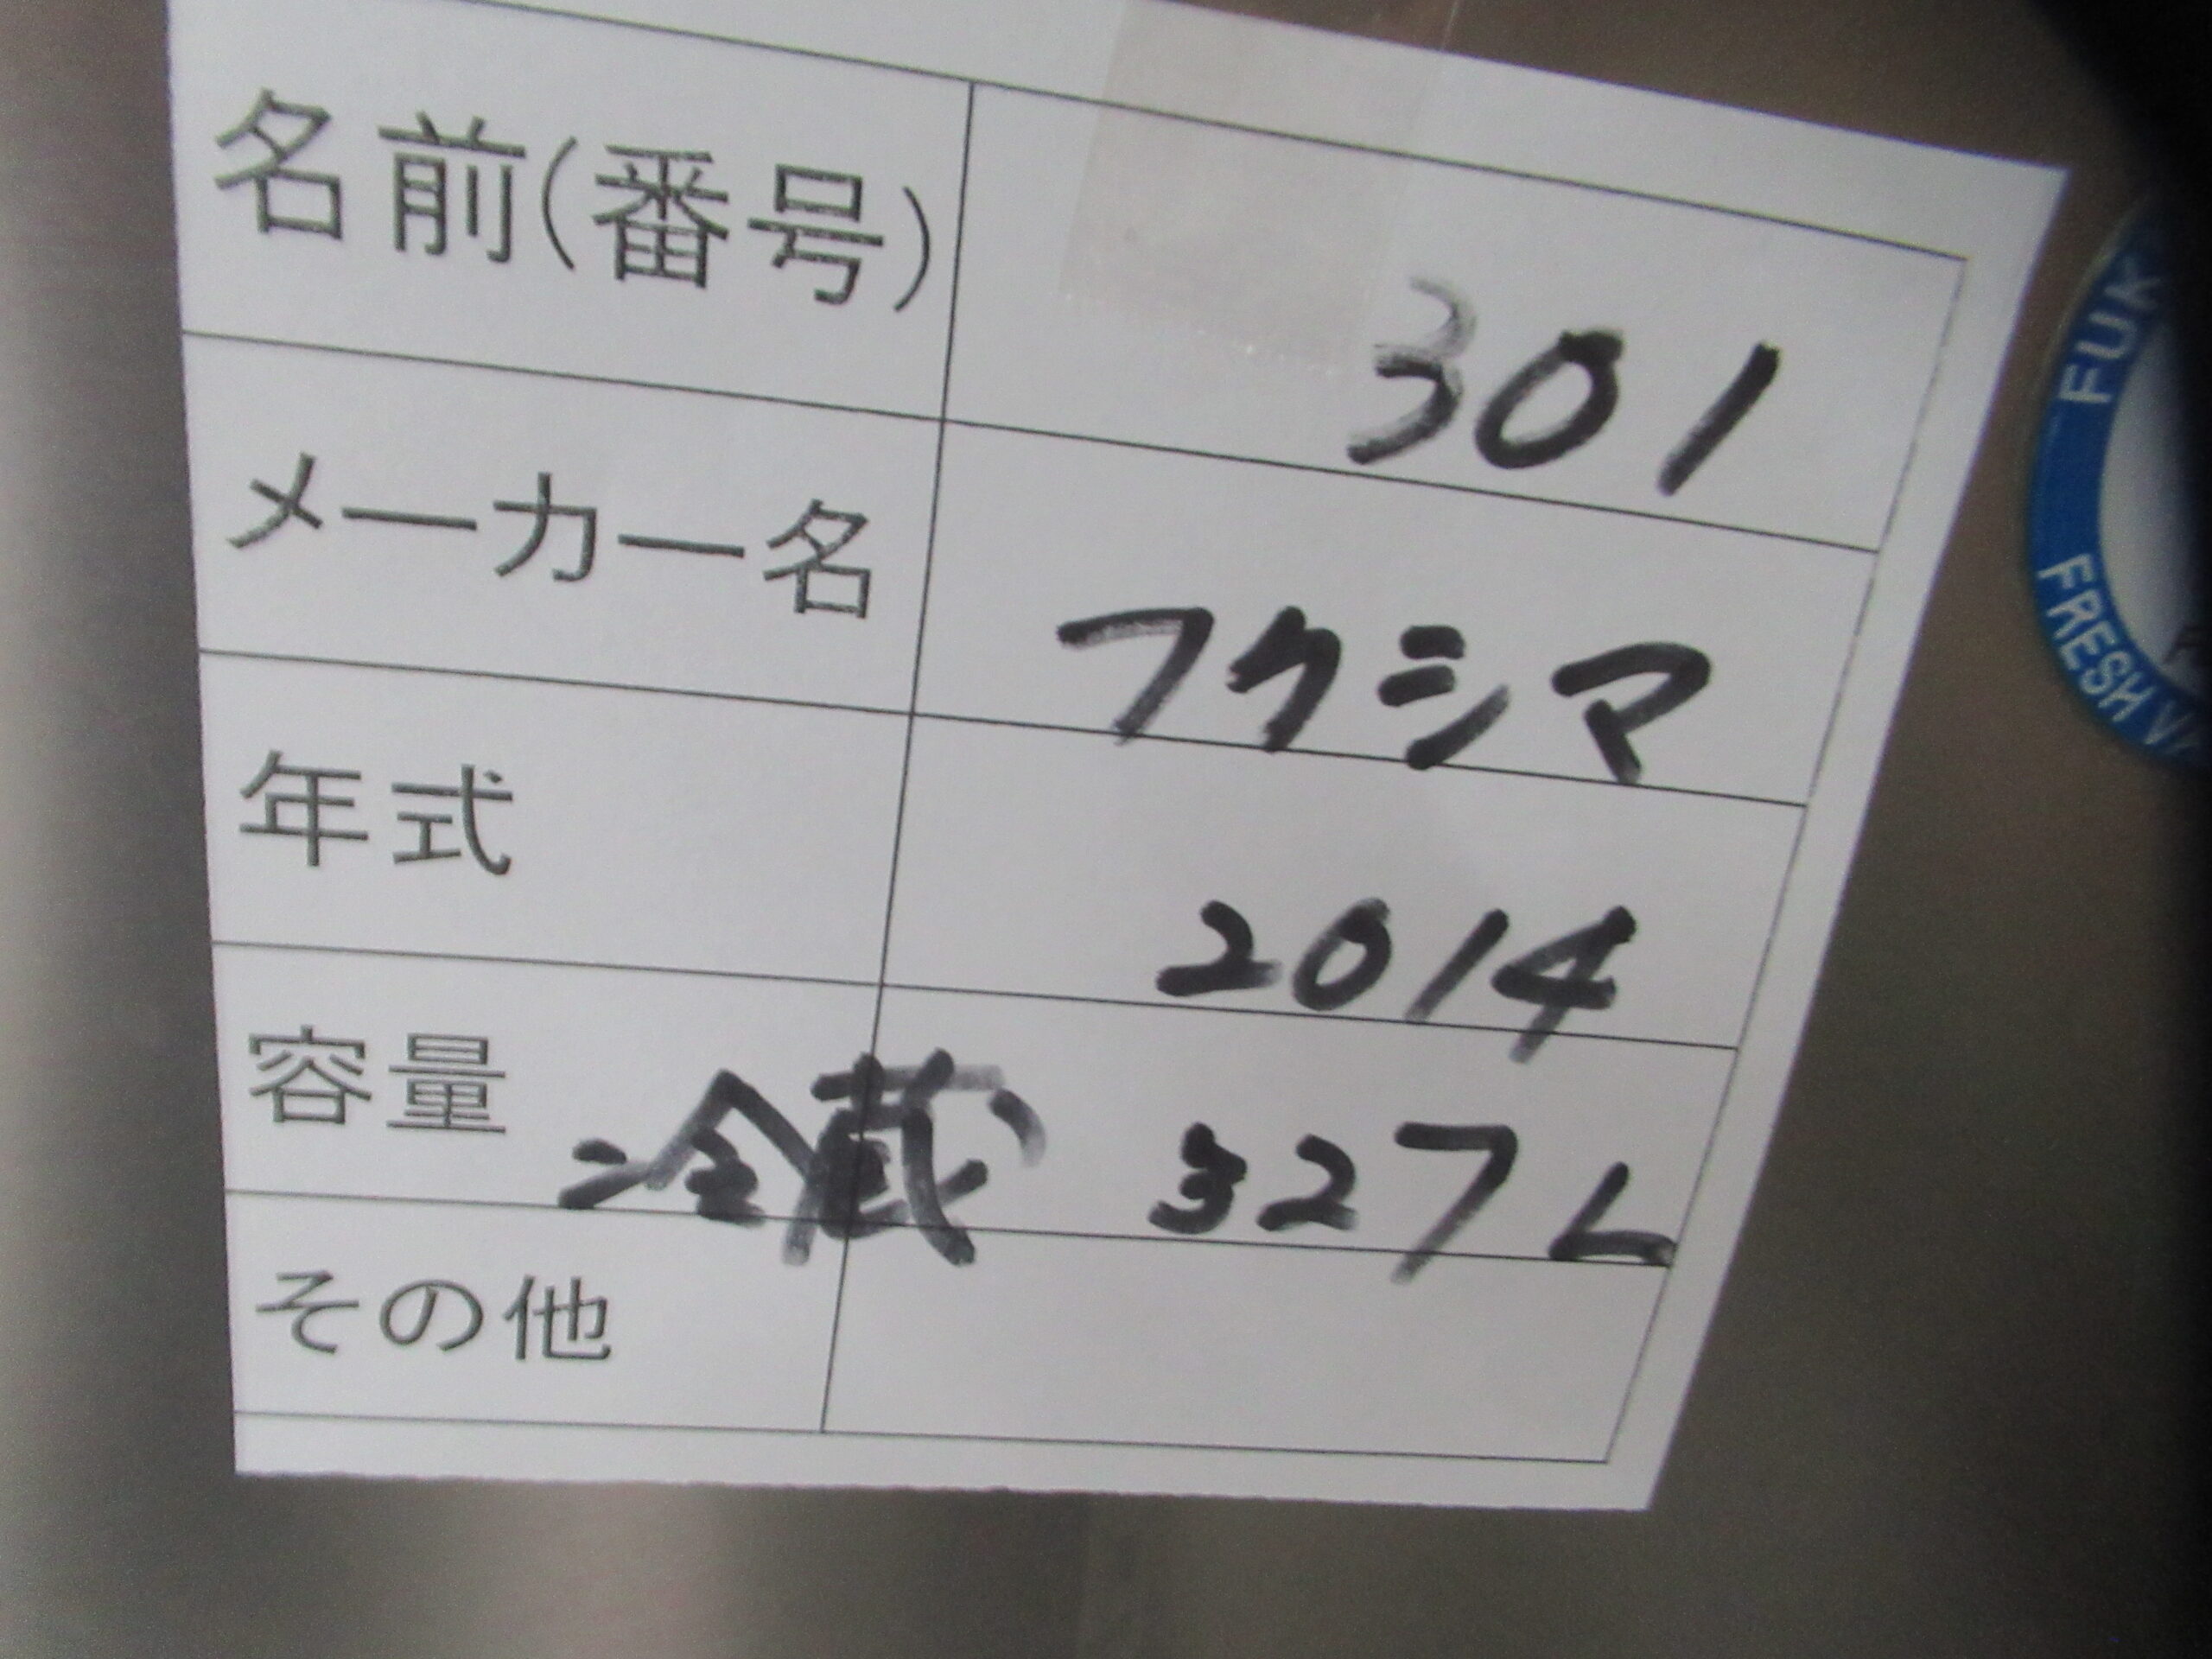 名前(番号) 301
メーカー名 フクシマ
年式 2014
容量 冷蔵 327L
その他
FUK
FRESH V